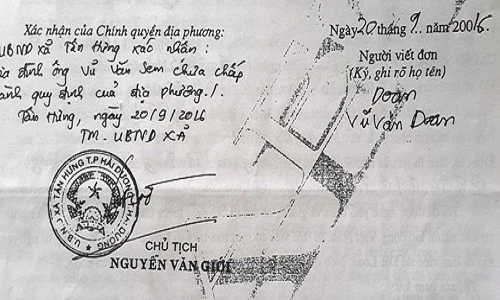 Xác nhận của Chính quyền địa phương:
UBND xã Tân Hưng xác nhận:
Gia đình ông Vũ Văn Sem chưa chấp
hành quy định của địa phương./.
Tân Hưng, ngày 20/9/2016
TM. UBND XÃ
U.B.N.D XÃ TÂN HƯNG T.P HẢI DƯƠNG T. HẢI DƯƠNG
CHỦ TỊCH
NGUYỄN VĂN GIỚI
Ngày 20 tháng 9. năm 20016
Người viết đơn
(Ký, ghi rõ họ tên)
Doan
Vũ Văn Doan